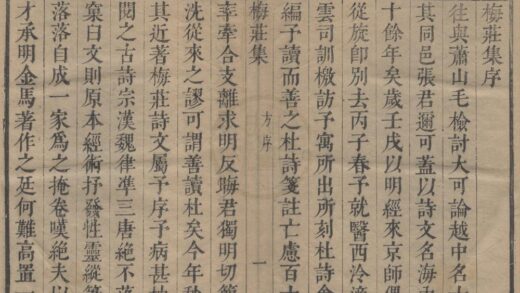 梅莊集序
往與蕭山毛檢討大可論越中名
其同邑張君邇可蓋以詩文名海
十餘年矣歲壬戌以明經來京師偶
從旋卽別去丙子春予就醫西泠
雲司訓檄訪予寓所出所刻杜詩會
編予讀而善之杜詩箋註亡慮百
梅莊集 方序 一
率牽合支離求明反晦君獨明切簡
洗從來之謬可謂善讀杜矣今年秋
其近著梅莊詩文屬予序予病甚
閱之古詩宗漢魏律準三唐絕不落
稾曰文則原本經術抒發性靈縱
落落自成一家爲之掩卷嘆絕夫以
才承明金馬著作之廷何難高置一